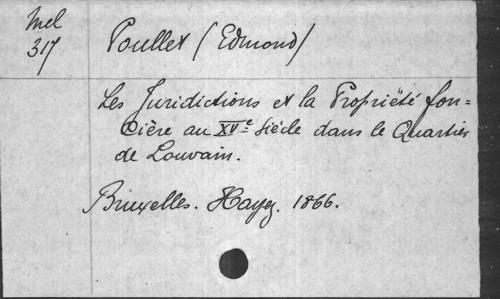 Mel
317
Poullet (Edmond)
Les Juridictions et la Propriété fon=
cière au XVe Siècle dans le Quartier
de Louvain.
Bruxelles. Hayez. 1866.